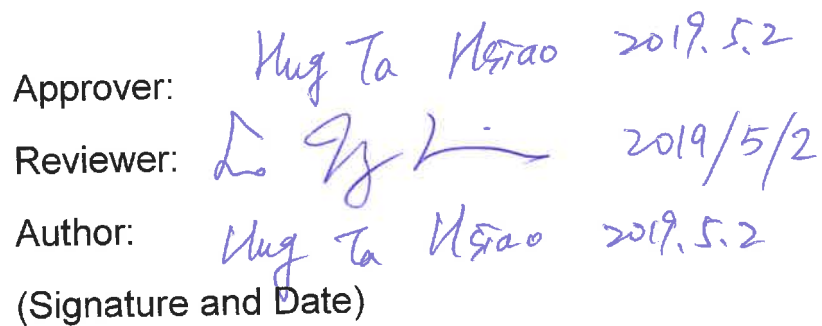 Approver: Hug Ta Hsiao 2019.5.2
Reviewer: 2019/5/2
Author: Hug Ta Hsiao 2019.5.2
(Signature and Date)